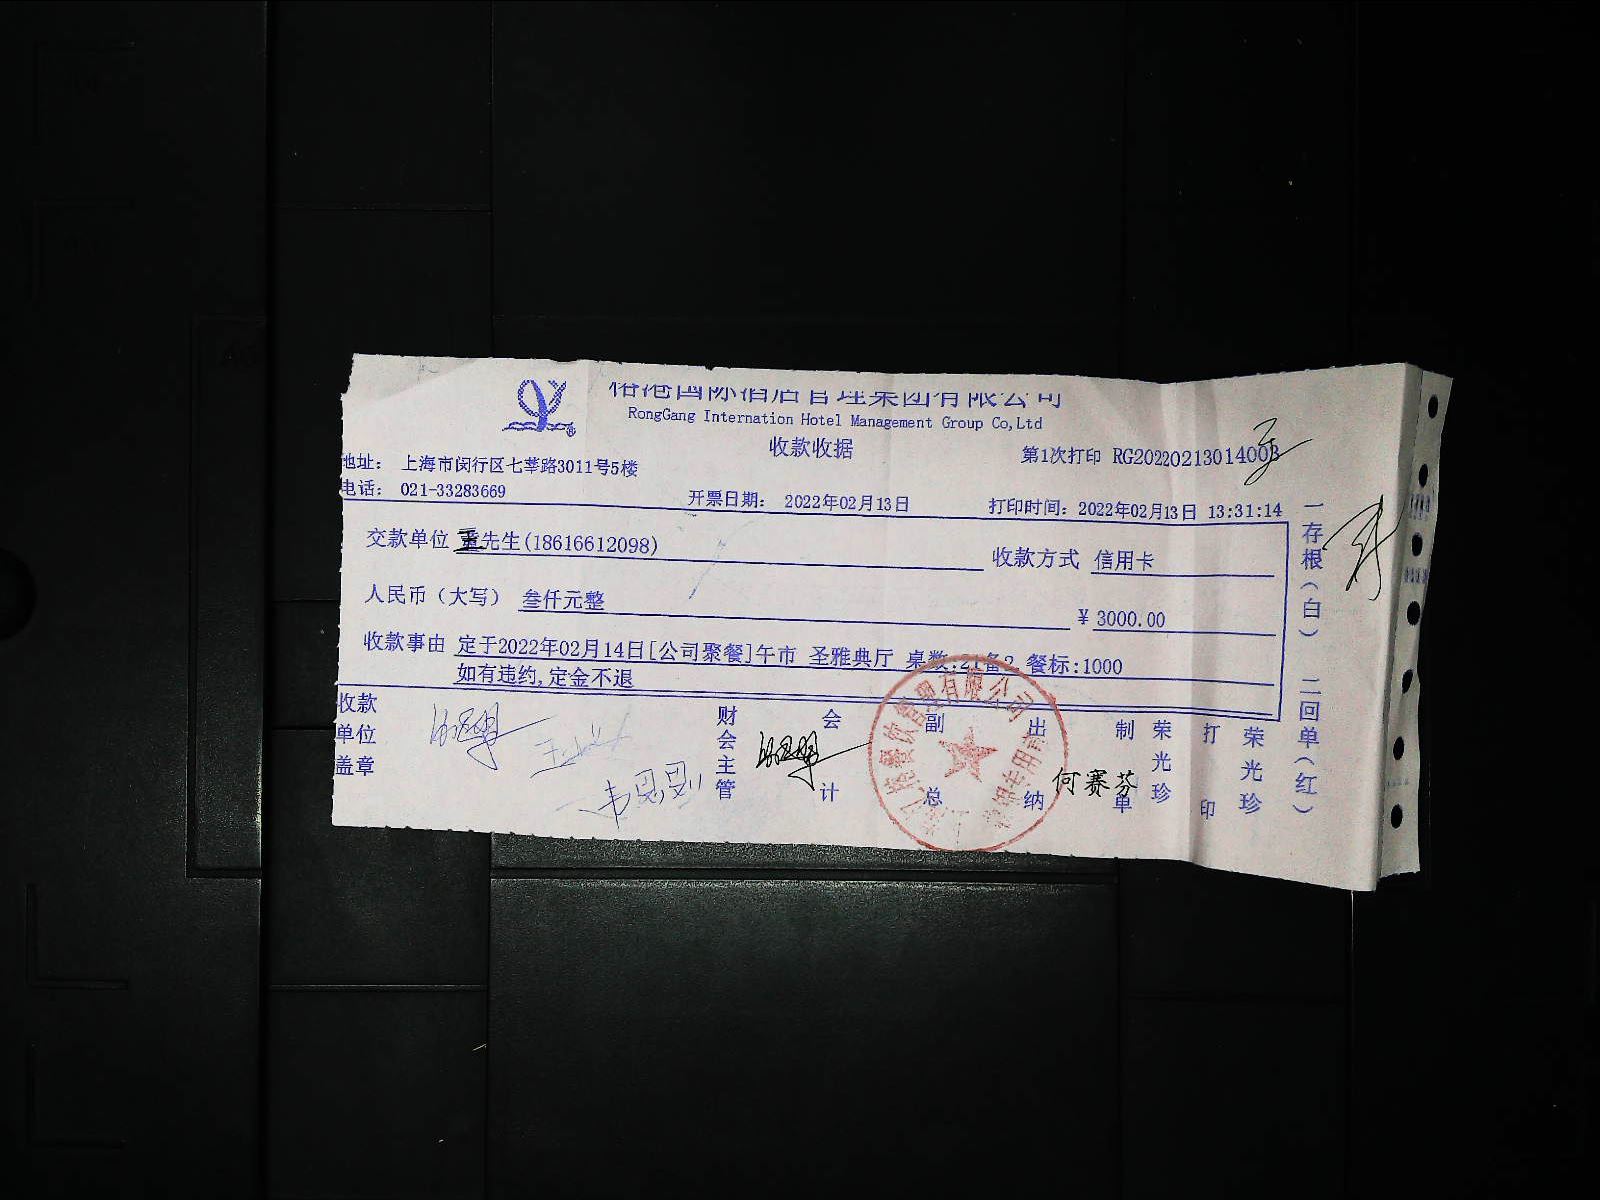 榕港国际酒店管理集团有限公司
RongGang Internation Hotel Management Group Co,Ltd
收款收据
第1次打印 RG20220213014003
地址: 上海市闵行区七莘路3011号5楼
电话: 021-33283669
开票日期: 2022年02月13日
打印时间: 2022年02月13日 13:31:14
交款单位 先生(18616612098)
收款方式 信用卡
人民币(大写) 叁仟元整
¥3000.00
收款事由 定于2022年02月14日[公司聚餐]午市 圣雅典厅 桌数:21备2 餐标:1000
如有违约,定金不退
收款单位盖章
财会主管
会计
副总
出纳
何赛芬
制单
荣光珍
打印
荣光珍
一存根(白) 二回单(红)
餐饮管理有限公司